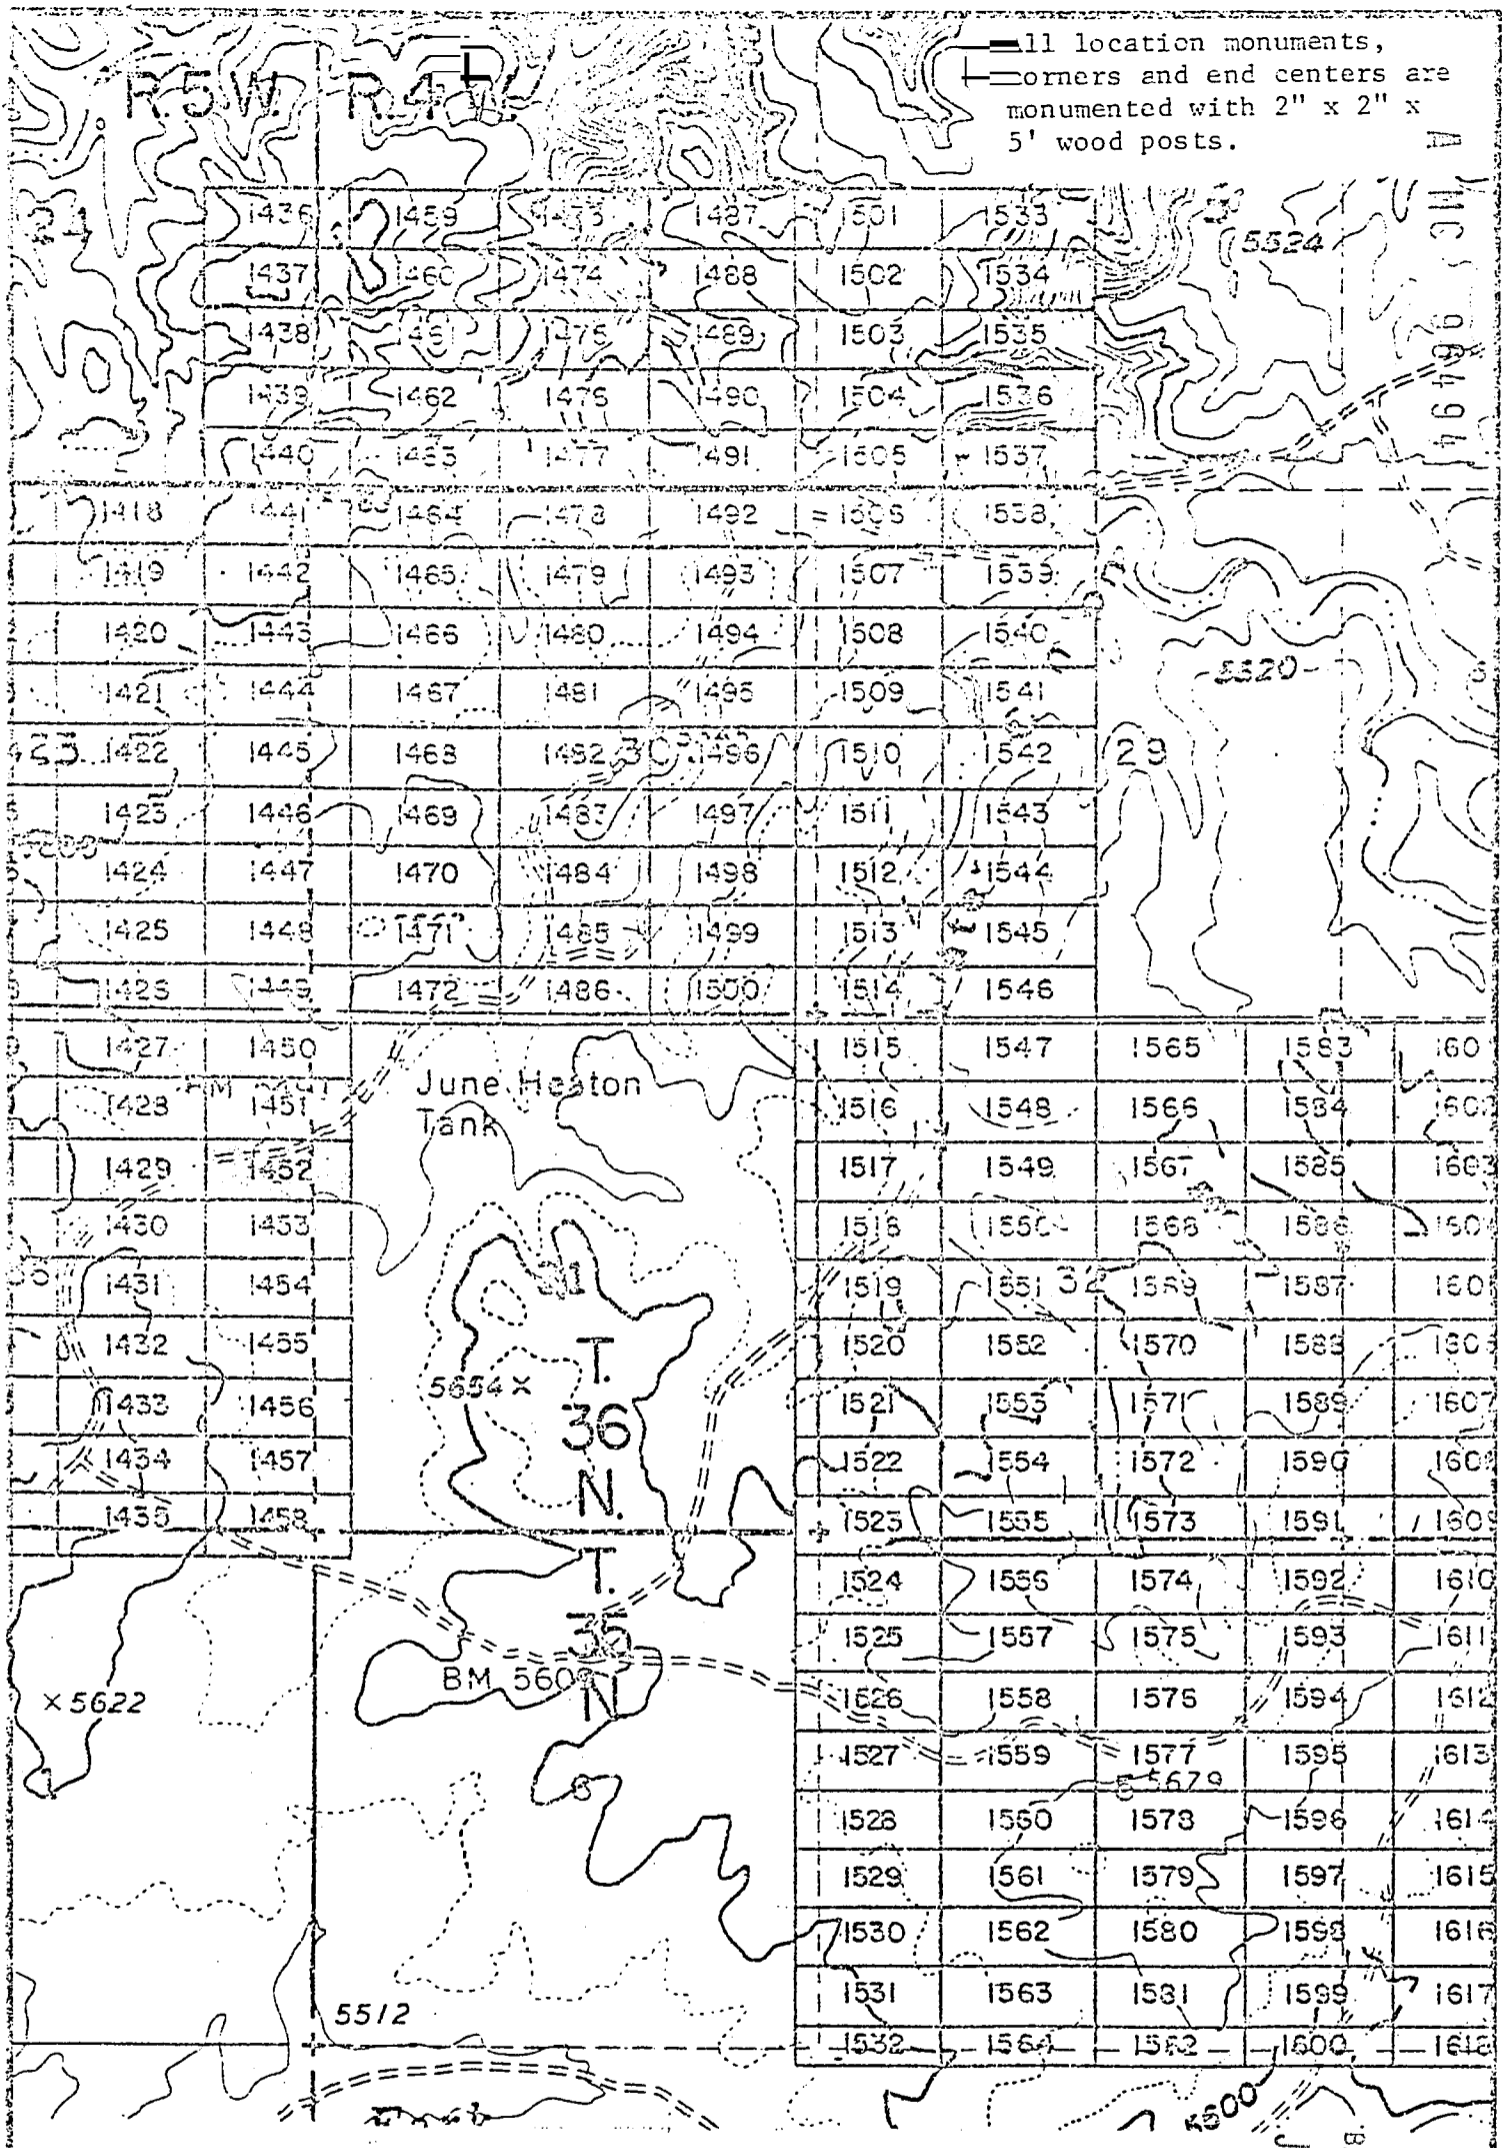 All location monuments,
corners and end centers are
monumented with 2" x 2" x
5' wood posts.
R.5W. R.4W.
A MC 66494
1436 1459 1473 1487 1501 1533
5524
1437 1460 1474 1488 1502 1534
1438 1461 1475 1489 1503 1535
1439 1462 1476 1490 1504 1536
1440 1463 1477 1491 1505 1537
1418 1441 1464 1478 1492 1506 1538
1419 1442 1465 1479 1493 1507 1539
1420 1443 1466 1480 1494 1508 1540
1421 1444 1467 1481 1495 1509 1541
5520
1422 1445 1468 1482 30 1496 1510 1542 29
1423 1446 1469 1483 1497 1511 1543
1424 1447 1470 1484 1498 1512 1544
1425 1448 1471 1485 1499 1513 1545
1426 1449 1472 1486 1500 1514 1546
1427 1450 1515 1547 1565 1583
June Heaton
Tank
1428 BM 1451 1516 1548 1566 1584
1429 1452 1517 1549 1567 1585 1603
1430 1453 1518 1550 1568 1586
1431 1454 31 1519 1551 32 1569 1587
1432 1455 1520 1552 1570 1588
T.
36
N.
5654
1433 1456 1521 1553 1571 1589 1607
1434 1457 1522 1554 1572 1590
1435 1458 1523 1555 1573 1591
T.
35
N
1524 1556 1574 1592 1610
1525 1557 1575 1593 1611
BM 560
×5622
1526 1558 1576 1594 1612
1527 1559 1577 1595 1613
6 5 5679
1528 1560 1578 1596 1614
1529 1561 1579 1597 1615
1530 1562 1580 1598 1616
1531 1563 1581 1599 1617
5512
1532 1564 1582 1600 1618
5500